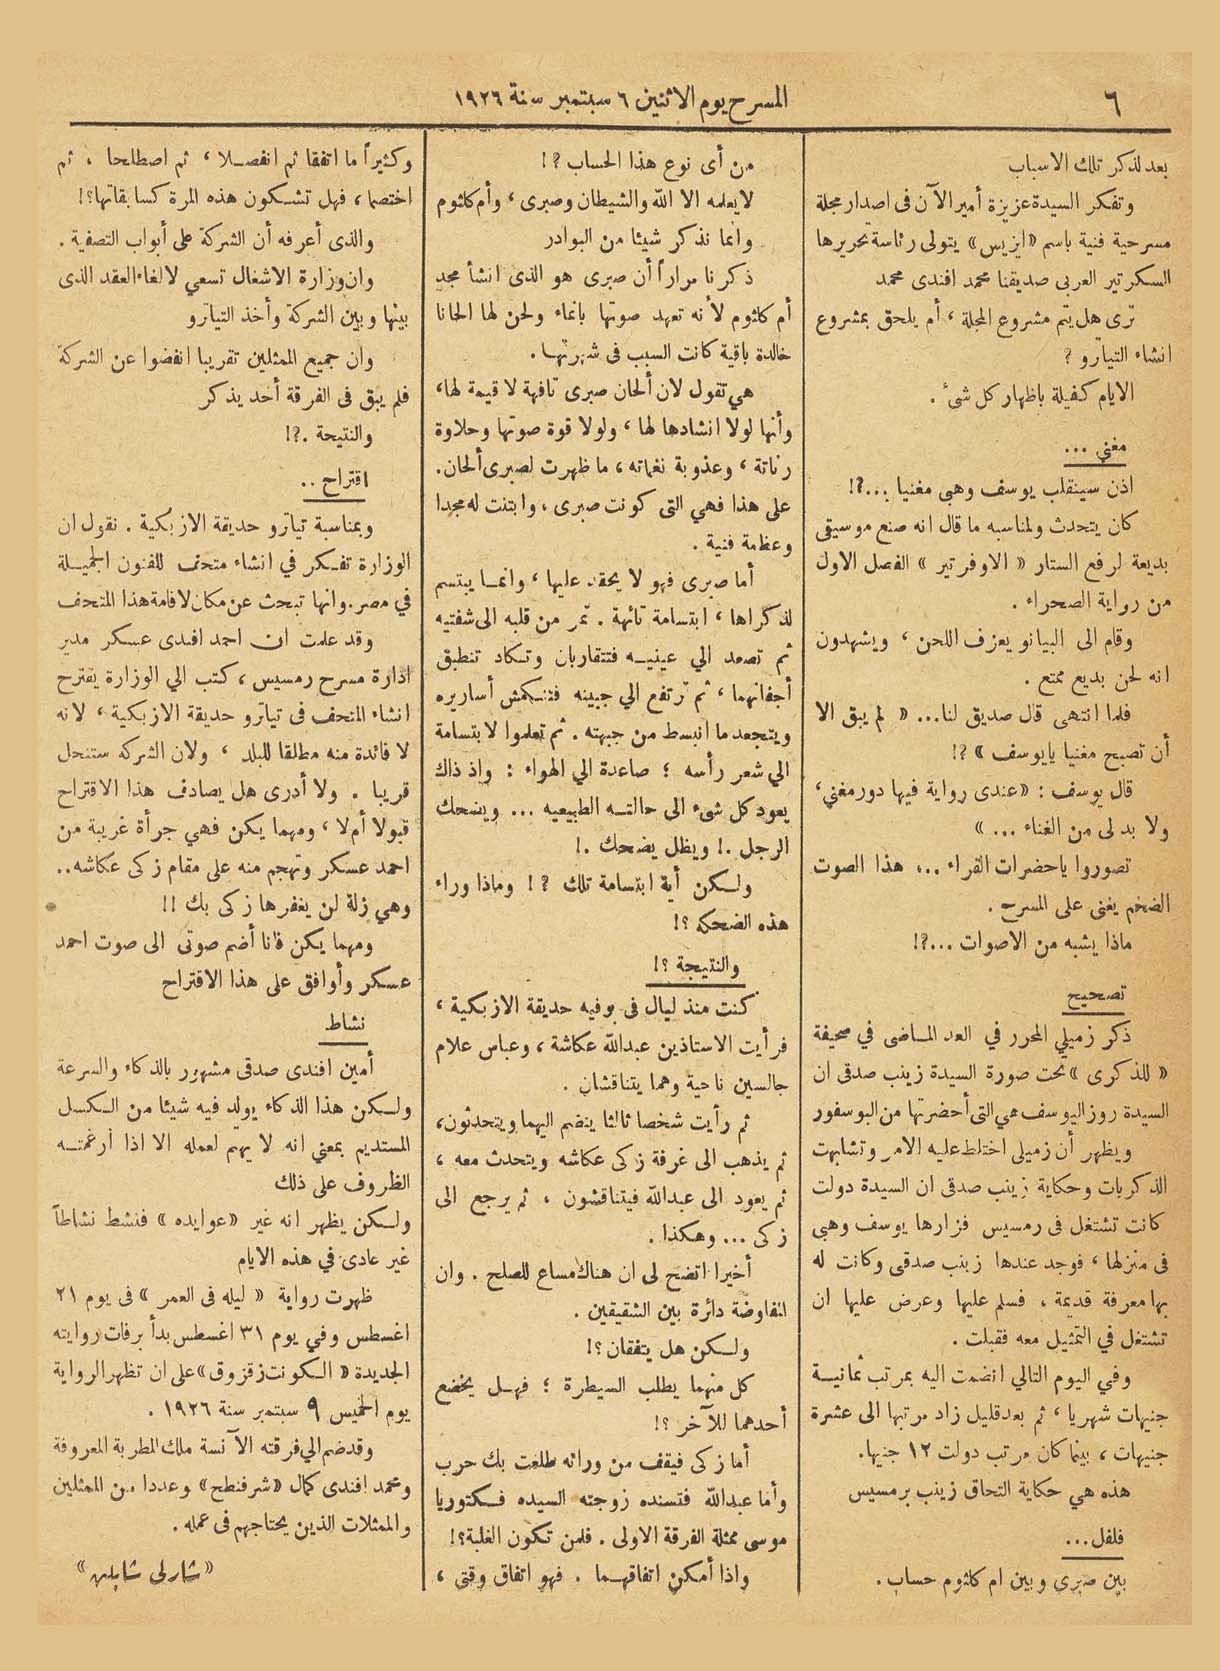 ٦
المسرح يوم الاثنين ٦ سبتمبر سنة ١٩٢٦
بعد لذكر تلك الاسباب
وتفكر السيدة عزيزة أمير الآن فى اصدار مجلة
مسرحية فنية باسم «ايزيس» يتولى رئاسة تحريرها
السكرتير العربى صديقنا محمد افندى محمد
ترى هل يتم مشروع المجلة ، أم يلحق بمشروع
انشاء التياترو ?
الايام كفيلة باظهار كل شىء .
مغني ...
اذن سينقلب يوسف وهبى مغنيا ...?!
كان يتحدث ولمناسبه ما قال انه صنع موسيقى
بديعة لرفع الستار « الاوفرتير » الفصل الاول
من رواية الصحراء .
وقام الى البيانو يعزف اللحن ، ويشهدون
انه لحن بديع ممتع .
فلما انتهى قال صديق لنا... « لم يبق الا
أن تصبح مغنيا يايوسف » ?!
قال يوسف : «عندى رواية فيها دور مغني،
ولا بد لى من الغناء ... »
تصوروا ياحضرات القراء ..، هذا الصوت
الضخم يغنى على المسرح .
ماذا يشبه من الاصوات ...?!
تصحيح
ذكر زميلي المحرر في العدد المـاضى في صحيفة
« للذكرى » تحت صورة السيدة زينب صدقى ان
السيدة روز اليوسف هي التى أحضرتها من البوسفور
ويظهر أن زميلى اختلط عليه الامر وتشابهت
الذكريات وحكاية زينب صدقى ان السيدة دولت
كانت تشتغل فى رمسيس فزارها يوسف وهبى
فى منزلها ، فوجد عندها زينب صدقى وكانت له
بها معرفة قديمة ، فسلم عليها وعرض عليها ان
تشتغل في التمثيل معه فقبلت .
وفي اليوم التالي انضمت اليه بمرتب ثمانيـة
جنيهات شهريا ، ثم بعد قليل زاد مرتبها الى عشرة
جنيهات ، بينما كان مرتب دولت ١٢ جنيها.
هذه هي حكاية التحاق زينب برمسيس
فلفل...
بين صبرى وبين ام كلثوم حساب .
من أى نوع هذا الحساب ?!
لا يعلمه الا الله والشيطان وصبرى ، وأم كلثوم
وانما نذكر شيئا من البوادر
ذكرنا مراراً أن صبرى هو الذى انشأ مجد
أم كلثوم لأنه تعهد صوتها بانماء ولحن لها الحانا
خالدة باقية كانت السبب فى شهرتهـا .
هى تقول لان ألحان صبرى تافهة لا قيمة لها،
وأنها لولا انشادها لها ، ولولا قوة صوتها وحلاوة
رناتة ، وعذوبة نغماته ، ما ظهرت لصبرى ألحان.
على هذا فهي التى كونت صبرى ، وابتنت له مجدا
وعظمة فنية .
أما صبرى فهو لا يحقد عليها ، وانمـا يبتسم
لذكراها ، ابتسامة تائهة . تمر من قلبه الى شفتيه
ثم تصعد الي عينيـه فتتقاربان وتـكاد تنطبق
أجفانهما ، ثم ترتفع الي جبينه فتنـكمش أساريره
ويتجعد ما انبسط من جبهته . ثم تعلموا لابتسامة
الي شعر رأسه ؛ صاعدة الي الهواء : واذ ذاك
يعود كل شىء الى حالتـه الطبيعيه ... ويضحك
الرجل .! ويظل يضحك .!
ولـكن أية ابتسامة تلك ?! وماذا وراء
هذه الضحكه ?!
والنتيجة ?!
كنت منذ ليال فى بوفيه حديقة الازبكية ،
فرأيت الاستاذين عبدالله عكاشة ، وعباس علام
جالسين ناحية وهما يتناقشان .
ثم رأيت شخصا ثالثا ينضم اليهما ويتحدثون،
ثم يذهب الى غرفة زكى عكاشه ويتحدث معه ،
ثم يعود الى عبدالله فيتناقشون ، ثم يرجع الى
زكى ... وهكذا .
أخيرا اتضح لى ان هناك مساع للصلح . وان
المفاوضة دائرة بين الشقيقين .
ولـكن هل يتفقان ?!
كل منهما يطلب السيطرة ؛ فهـل يخضع
أحدهما للآخر ?!
أما زكى فيقف من ورائه طلعت بك حرب
وأما عبدالله فتسنده زوجته السيده فـكتوريا
موسى ممثلة الفرقة الاولى . فلمن تكون الغلبة?!
واذا أمكن اتفاقهـما . فهو اتفاق وقتى ،
وكثيراً ما اتفقا ثم انفصـلا ، ثم اصطلحا ، ثم
اختصما ، فهل تشـكون هذه المرة كسابقاتها?!
والذى أعرفه أن الشركة على أبواب التصفية .
وان وزارة الاشغال تسعي لالغاء العقد الذى
بينها وبين الشركة وأخذ التياترو
وان جميع الممثلين تقريبا انفضوا عن الشركة
فلم يبق فى الفرقة أحد يذكر
والنتيجة .?!
اقتراح ..
وبمناسبة تياترو حديقة الازبكية . نقول ان
الوزارة تفـكر في انشاء متحف للفنون الجميـلة
في مصر. وانها تبحث عن مكان لاقامة هذا المتحف
وقد علمت ان احمد افندى عسكر مدير
ادارة مسرح رمسيس ، كتب الي الوزارة يقترح
انشاء المتحف فى تياترو حديقة الازبكية ، لانه
لا فائدة منه مطلقا للبلد ، ولان الشركه ستنحل
قريبا . ولا أدرى هل يصادف هذا الاقتراح
قبولا أم لا ، ومهما يكن فهي جرأة غريبة من
احمد عسكر وتهجم منه على مقام زكى عكاشه..
وهي زلة لن يغفرها زكى بك !!
ومهما يكن فانا أضم صوتى الى صوت احمد
عسكر وأوافق على هذا الاقتراح
نشاط
أمين افندى صدقى مشهور بالذكاء والسرعة
ولـكن هذا الذكاء يولد فيه شيئا من الـكسل
المستديم بمعني انه لا يهم لعمله الا اذا أرغمتـه
الظروف على ذلك
ولـكن يظهر انه غير «عوايده» فنشط نشاطاً
غير عادى في هذه الايام
ظهرت رواية « ليله فى العمر » فى يوم ٢١
اغسطس وفي يوم ٣١ اغسطس بدأ برفات روايته
الجديدة « الـكونت زقزوق» على ان تظهر الرواية
يوم الخميس ٩ سبتمبر سنة ١٩٢٦ .
وقد ضم الي فرقته الآنسة ملك المطربة المعروفة
ومحمد افندى كمال «شرفنطح» وعددا من الممثلين
والممثلات الذين يحتاجهم فى عمله .
«شارلى شابلن»